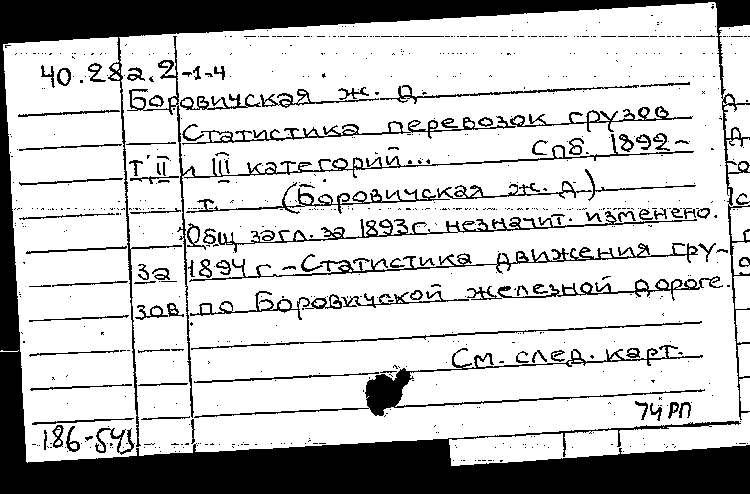 40.28а.2-1-4
Боровичская ж. д.
Статистика перевозок грузов
I, II и III категорий... Спб., 1892-
т. (Боровичская ж. д.).
Общ. загл. за 1893 г. незначит. изменено.
за 1894 г. - Статистика движения гру-
зов по Боровичской железной дороге.
См. след. карт.
74 РП